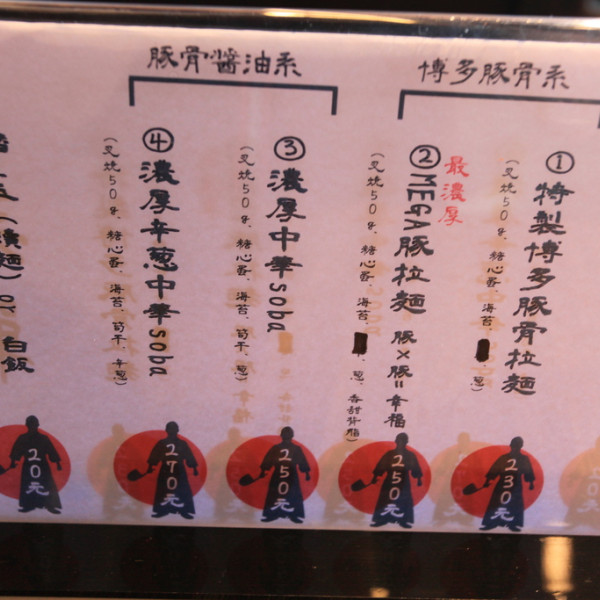 博多豚骨系
①特製博多豚骨拉麵
(叉燒50g、糖心蛋、海苔、蔥)
230元
最濃厚
②MEGA豚拉麵 豚×豚=幸福
(叉燒50g、糖心蛋、海苔、蔥、香甜背脂)
250元
豚骨醬油系
③濃厚中華soba
(叉燒50g、糖心蛋、海苔、筍干、蔥)
250元
④濃厚辛葱中華soba
(叉燒50g、糖心蛋、海苔、筍干、辛蔥)
270元
(續麵) or 白飯
20元